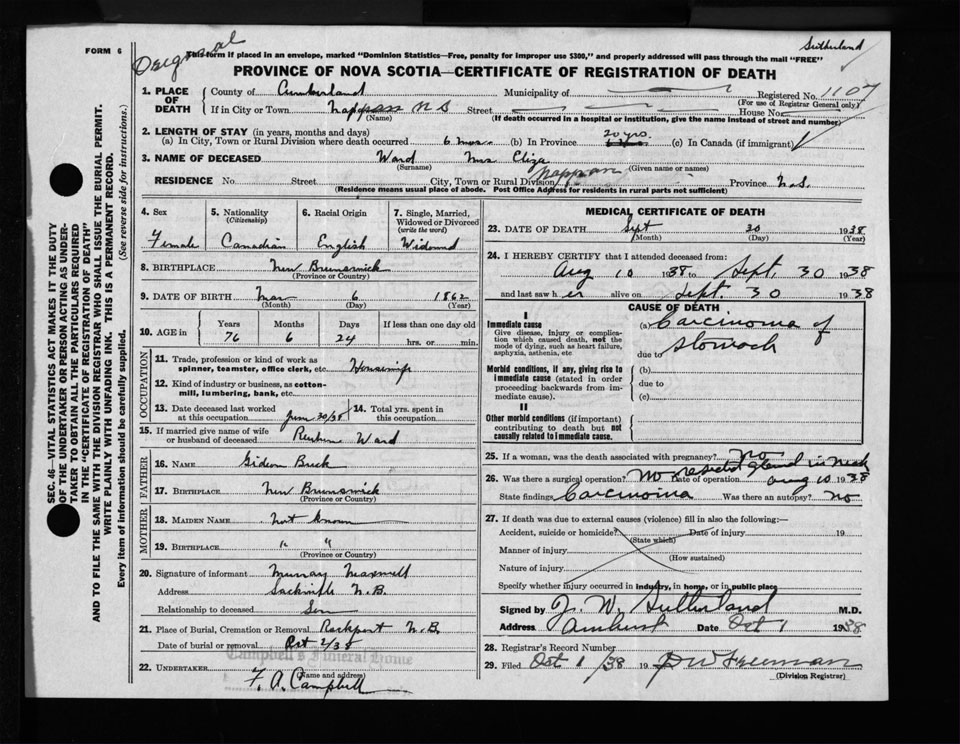 Original
Sutherland
FORM 6
This form if placed in an envelope, marked "Dominion Statistics—Free, penalty for improper use $300," and properly addressed will pass through the mail "FREE"
PROVINCE OF NOVA SCOTIA—CERTIFICATE OF REGISTRATION OF DEATH
SEC. 46—VITAL STATISTICS ACT MAKES IT THE DUTY
OF THE UNDERTAKER OR PERSON ACTING AS UNDER-
TAKER TO OBTAIN ALL THE PARTICULARS REQUIRED
IN THE "CERTIFICATE OF REGISTRATION OF DEATH"
AND TO FILE THE SAME WITH THE DIVISION REGISTRAR WHO SHALL ISSUE THE BURIAL PERMIT.
WRITE PLAINLY WITH UNFADING INK. THIS IS A PERMANENT RECORD.
Every item of information should be carefully supplied. (See reverse side for instructions.)
1. PLACE OF DEATH
County of Cumberland Municipality of Registered No. 1107
(For use of Registrar General only)
If in City or Town Nappan N S Street House No.
(Name) (If death occurred in a hospital or institution, give the name instead of street and number)
2. LENGTH OF STAY (in years, months and days)
(a) In City, Town or Rural Division where death occurred 6 mos. (b) In Province 20 yrs. (c) In Canada (if immigrant)
3. NAME OF DECEASED Ward Mrs Eliza
(Surname) (Given name or names)
RESIDENCE No. Street City, Town or Rural Division Nappan Province N.S.
(Residence means usual place of abode. Post Office Address for residents in rural parts not sufficient)
4. Sex
Female
5. Nationality
(Citizenship)
Canadian
6. Racial Origin
English
7. Single, Married,
Widowed or Divorced
(write the word)
Widowed
8. BIRTHPLACE New Brunswick
(Province or Country)
9. DATE OF BIRTH Mar 6 1862
(Month) (Day) (Year)
10. AGE in Years Months Days If less than one day old
76 6 24 hrs. or min.
OCCUPATION
11. Trade, profession or kind of work as
spinner, teamster, office clerk, etc. Housewife
12. Kind of industry or business, as cotton-
mill, lumbering, bank, etc.
13. Date deceased last worked
at this occupation June 30/38
14. Total yrs. spent in
this occupation.
15. If married give name of wife
or husband of deceased Reuben Ward
FATHER
16. NAME Gideon
17. BIRTHPLACE New Brunswick
(Province or Country)
MOTHER
18. MAIDEN NAME Not Known
19. BIRTHPLACE " "
(Province or Country)
20. Signature of informant Murray Maxwell
Address Sackville N.B.
Relationship to deceased Son
21. Place of Burial, Cremation or Removal Rockport N.B.
Date of burial or removal Oct 2/38
Campbell's Funeral Home
22. UNDERTAKER
(Name and address)
F. A. Campbell
MEDICAL CERTIFICATE OF DEATH
23. DATE OF DEATH Sept 30 1938
(Month) (Day) (Year)
24. I HEREBY CERTIFY that I attended deceased from:
Aug 10 1938 to Sept. 30 1938
and last saw her alive on Sept. 30 1938
CAUSE OF DEATH
I
Immediate cause
Give disease, injury or complica-
tion which caused death, not the
mode of dying, such as heart failure,
asphyxia, asthenia, etc
(a) Carcinoma of
stomach
due to
Morbid conditions, if any, giving rise to
immediate cause (stated in order
proceeding backwards from im-
mediate cause).
(b)
due to
(c)
II
Other morbid conditions (if important)
contributing to death but not
causally related to immediate cause.
25. If a woman, was the death associated with pregnancy? No
26. Was there a surgical operation? No resected gland in neck Date of operation Aug 10 1938
State findings Carcinoma Was there an autopsy? No
27. If death was due to external causes (violence) fill in also the following:—
Accident, suicide or homicide? Date of injury 19
(State which)
Manner of injury
(How sustained)
Nature of injury
Specify whether injury occurred in industry, in home, or in public place
Signed by J. W. Sutherland M.D.
Address Amherst Date Oct 1 1938
28. Registrar's Record Number
29. Filed Oct 1 /38 19 Freeman
(Division Registrar)